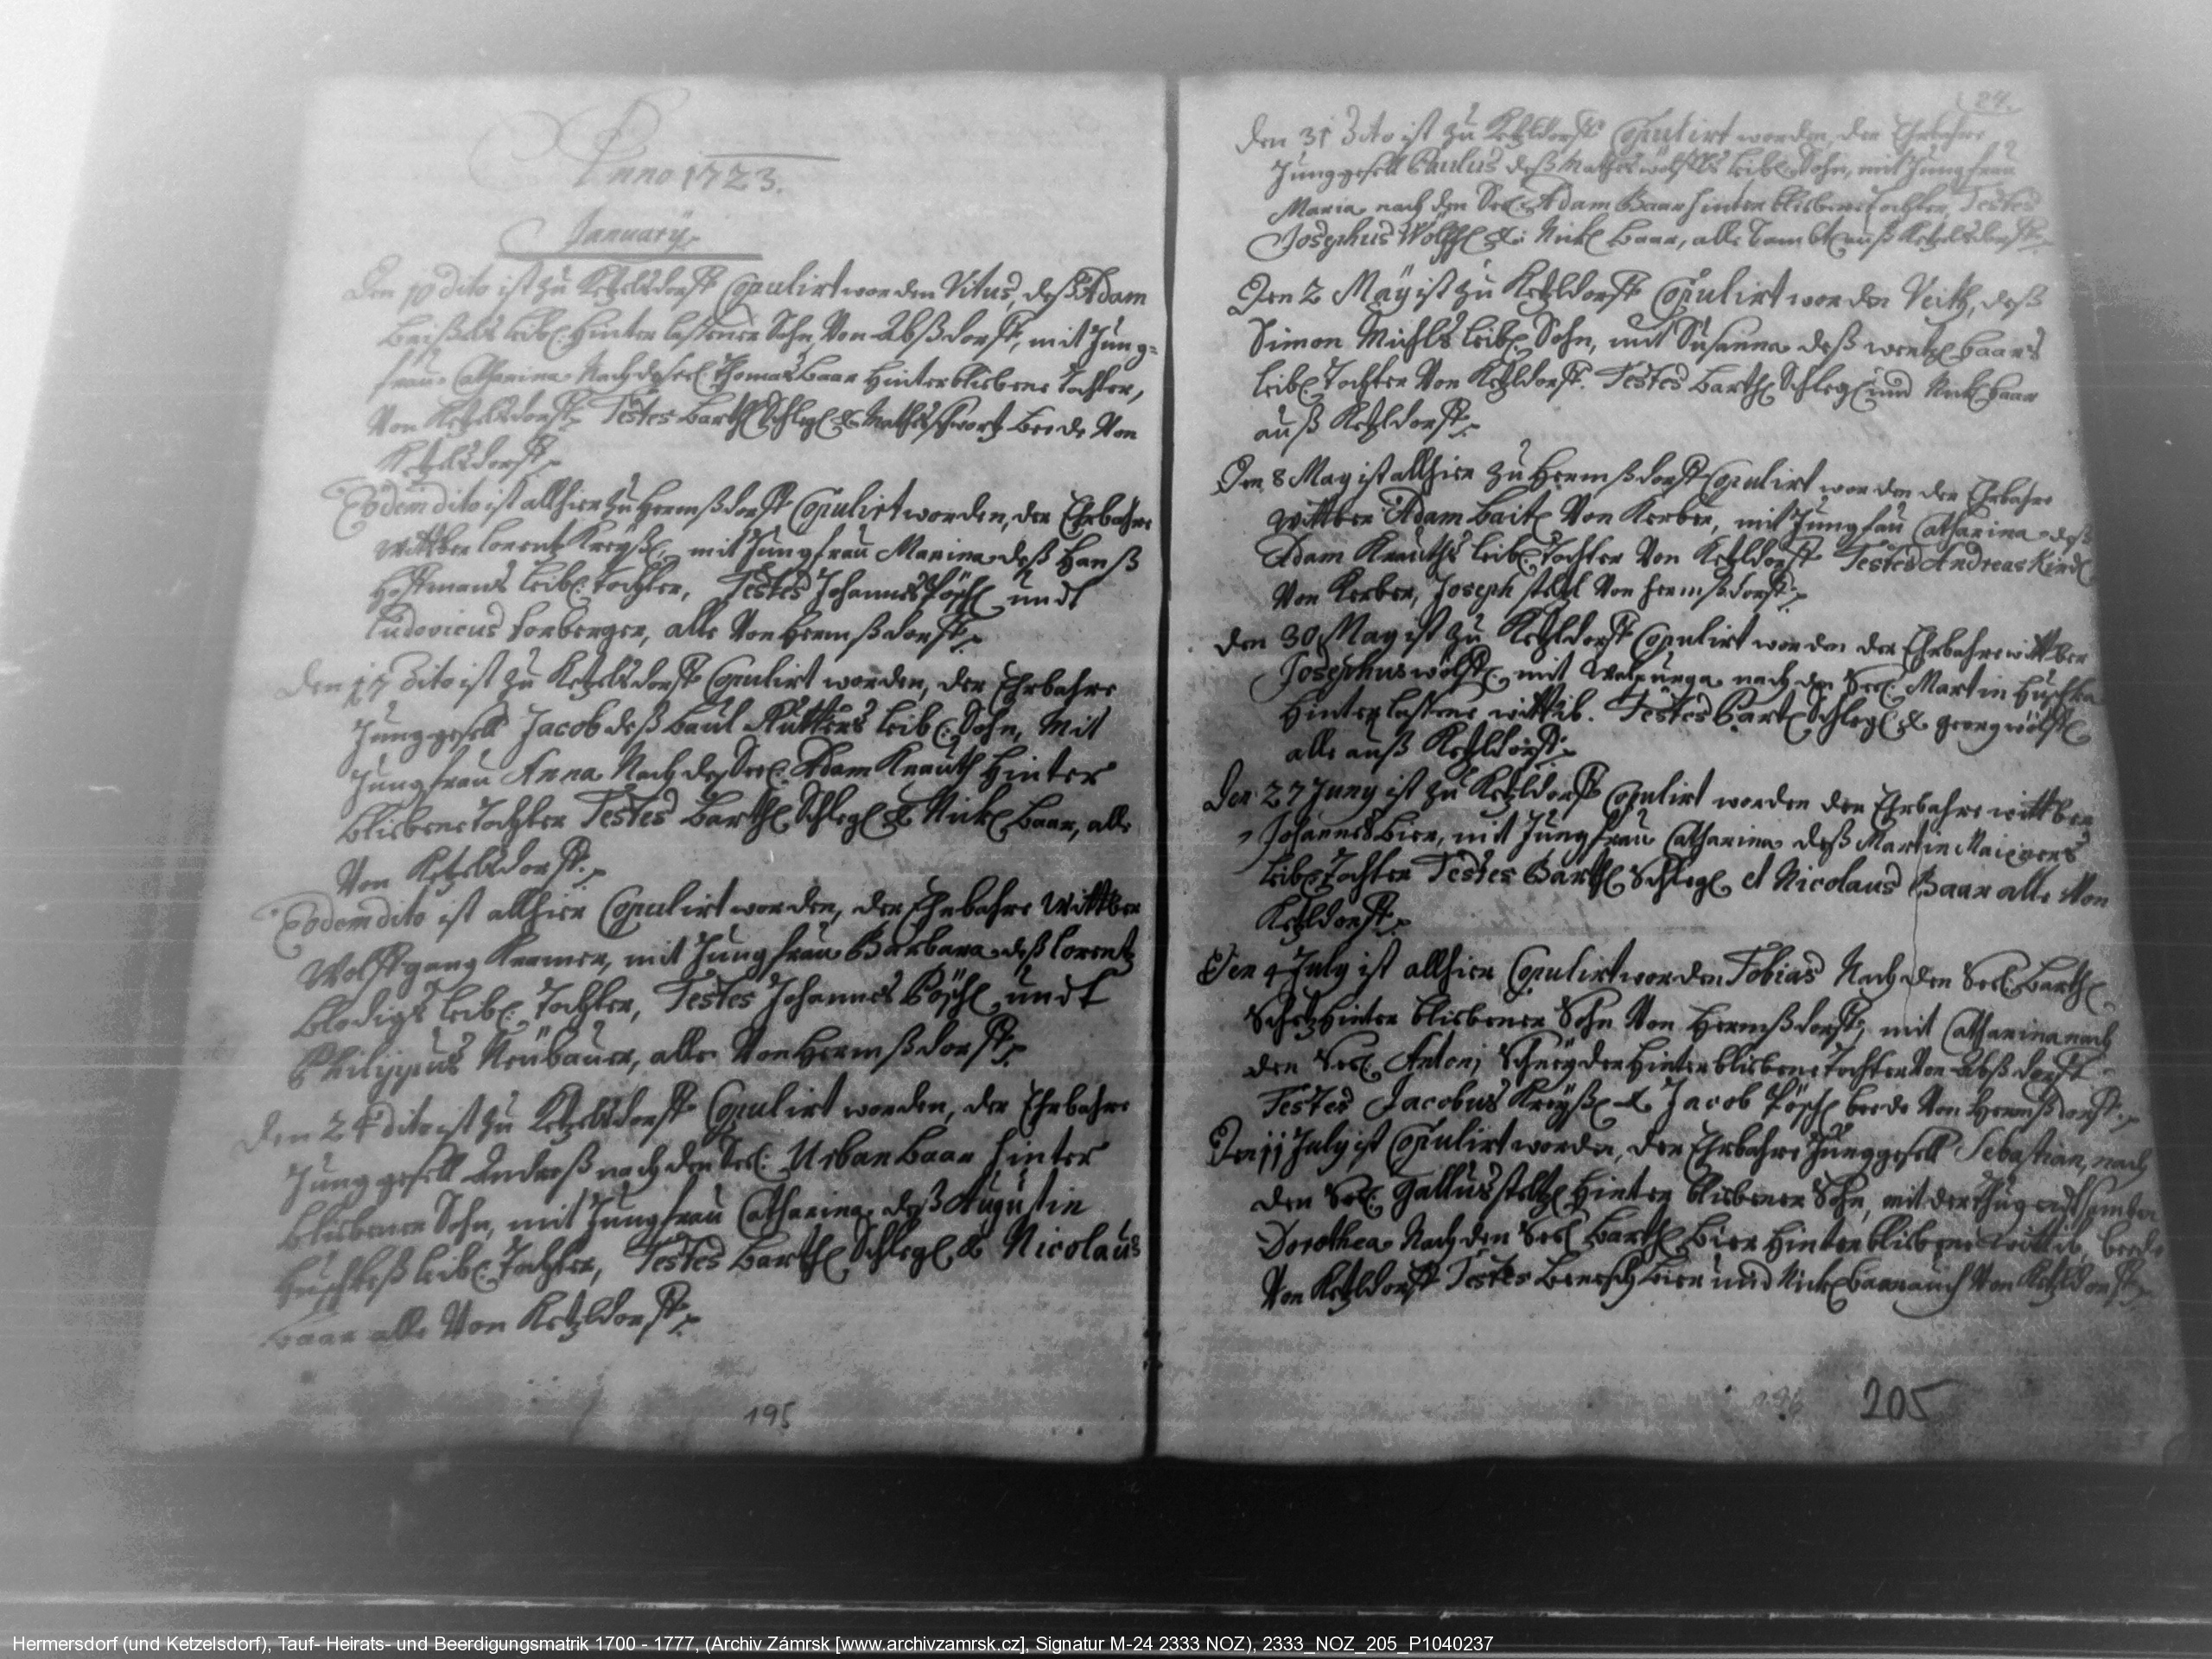 Anno 1723.
January
Den 10 dito ist zu Ketzelsdorff Copulirt worden Vitus, deß Adam
leibl: Hinterlassener Sohn Von Abßdorff, mit Jung-
frau Catharina Nach deß Seel: Thomas Baar Hinterbliebene Tochter,
Von Ketzelsdorff. Testes Barthl Schlegl & Mathes Schwartz beede Von
Ketzelsdorff.
Eodem dito ist allhier zu Hermßdorff Copulirt worden, der Ehrbahre
Wittber Lorentz Kreyßl, mit Jungfrau Marina deß Hanß
Hoffmans leibl: Tochter, Testes Johannes Pöschl undt
Ludovicus Forberger, alle Von Hermßdorff.
Den 17 dito ist zu Ketzelsdorff Copulirt worden, der Ehrbahre
Junggesell Jacob deß Paul Rütters leibl: Sohn, Mit
Jungfrau Anna Nach deß Seel: Adam Knauth Hinter
bliebene Tochter Testes Barthl Schlegl & Nickl Baar, alle
Von Ketzelsdorff.
Eodem dito ist allhier Copulirt worden, der Ehrbahre Wittber
Wolffgang Kramer, mit Jungfrau Barbara deß Lorentz
Blodigs leibl: Tochter, Testes Johannes Pöschl undt
Philippus Neübauer, alle Von Hermßdorff.
Den 24 dito ist zu Ketzelsdorff Copulirt worden, der Ehrbahre
Junggesell Andreß nach den Seel: Urban Baar Hinter
bliebener Sohn, mit Jungfrau Catharina deß Augustin
leibl: Tochter, Testes Barthl Schlegl & Nicolaus
Baar alle Von Ketzldorff.
195
24.
Den 31 dito ist zu Ketzldorff Copulirt worden, der Ehrbahre
Junggesell Paulus deß Mathes Wölffls leibl: Sohn, mit Jungfrau
Maria nach den Seel: Adam Baar hinterbliebene Tochter, Testes
Josephus Wölffl & Nickl Baar, alle sambt auß Ketzelsdorff.
Den 2 May ist zu Ketzldorff Copulirt worden Veith, deß
Simon Michls leibl: Sohn, mit Susanna deß Wentzl Baars
leibl: Tochter Von Ketzldorff. Testes Barthl Schlegl und Nickl Baar
auß Ketzldorff.
Den 8 May ist allhier zu Hermßdorff Copulirt worden der Ehrbahre
Wittber Adam Von Kerber, mit Jungfrau Catharina deß
Adam Knauths leibl: Tochter Von Ketzldorff Testes Andreas Kindl
Von Kerber, Joseph Von Hermßdorff.
Den 30 May ist zu Ketzldorff Copulirt worden der Ehrbahre Wittber
Josephus Wölffl. mit Walpurga nach den Seel: Martin
Hinterlassene Wittib. Testes Bartl Schlegl & Georg Wölffl
alle auß Ketzldorff.
Den 27 Juny ist zu Ketzldorff Copulirt worden der Ehrbahre Wittber
Johannes Bier, mit Jungfrau Catharina deß Martin
leibl: Tochter Testes Barthl Schlegl et Nicolaus Baar alle Von
Ketzldorff.
Den 4 July ist allhier Copulirt worden Tobias Nach den Seel: Barthl
Hinterbliebener Sohn Von Hermßdorff, mit Catharina nach
den Seel: Antonj Schneyder Hinterbliebene Tochter Von Abßdorff
Testes Jacobus Kreyßl & Jacob Pöschl beede Von Hermßdorff.
Den 11 July ist Copulirt worden, der Ehrbahre Junggesell Sebastian, nach
den Seel: Gallus Steltzl Hinterbliebener Sohn, mit der Thugendtsamben
Dorothea Nach den Seel Barthl Bier Hinterbliebene Wittib, beede
Von Ketzldorff Testes Bier und Nickl Baar auch Von Ketzldorff.
196
205
Hermersdorf (und Ketzelsdorf), Tauf- Heirats- und Beerdigungsmatrik 1700 - 1777, (Archiv Zámrsk [www.archivzamrsk.cz], Signatur M-24 2333 NOZ), 2333_NOZ_205_P1040237